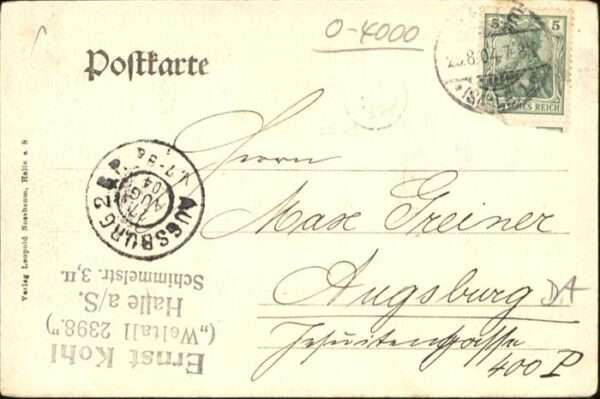 O-4000
Postkarte
5 5
.8.04.7-
SCHES REICH
AUGSBURG 2
AUG
04
V.7-8
Herrn
Max Greiner
Augsburg
DA
Jesuitengasse
400 P
Verlag Leopold Nussbaum, Halle a S
Ernst Kohl
(„Weltall 2398.")
Halle a/S.
Schimmelstr. 3, II.